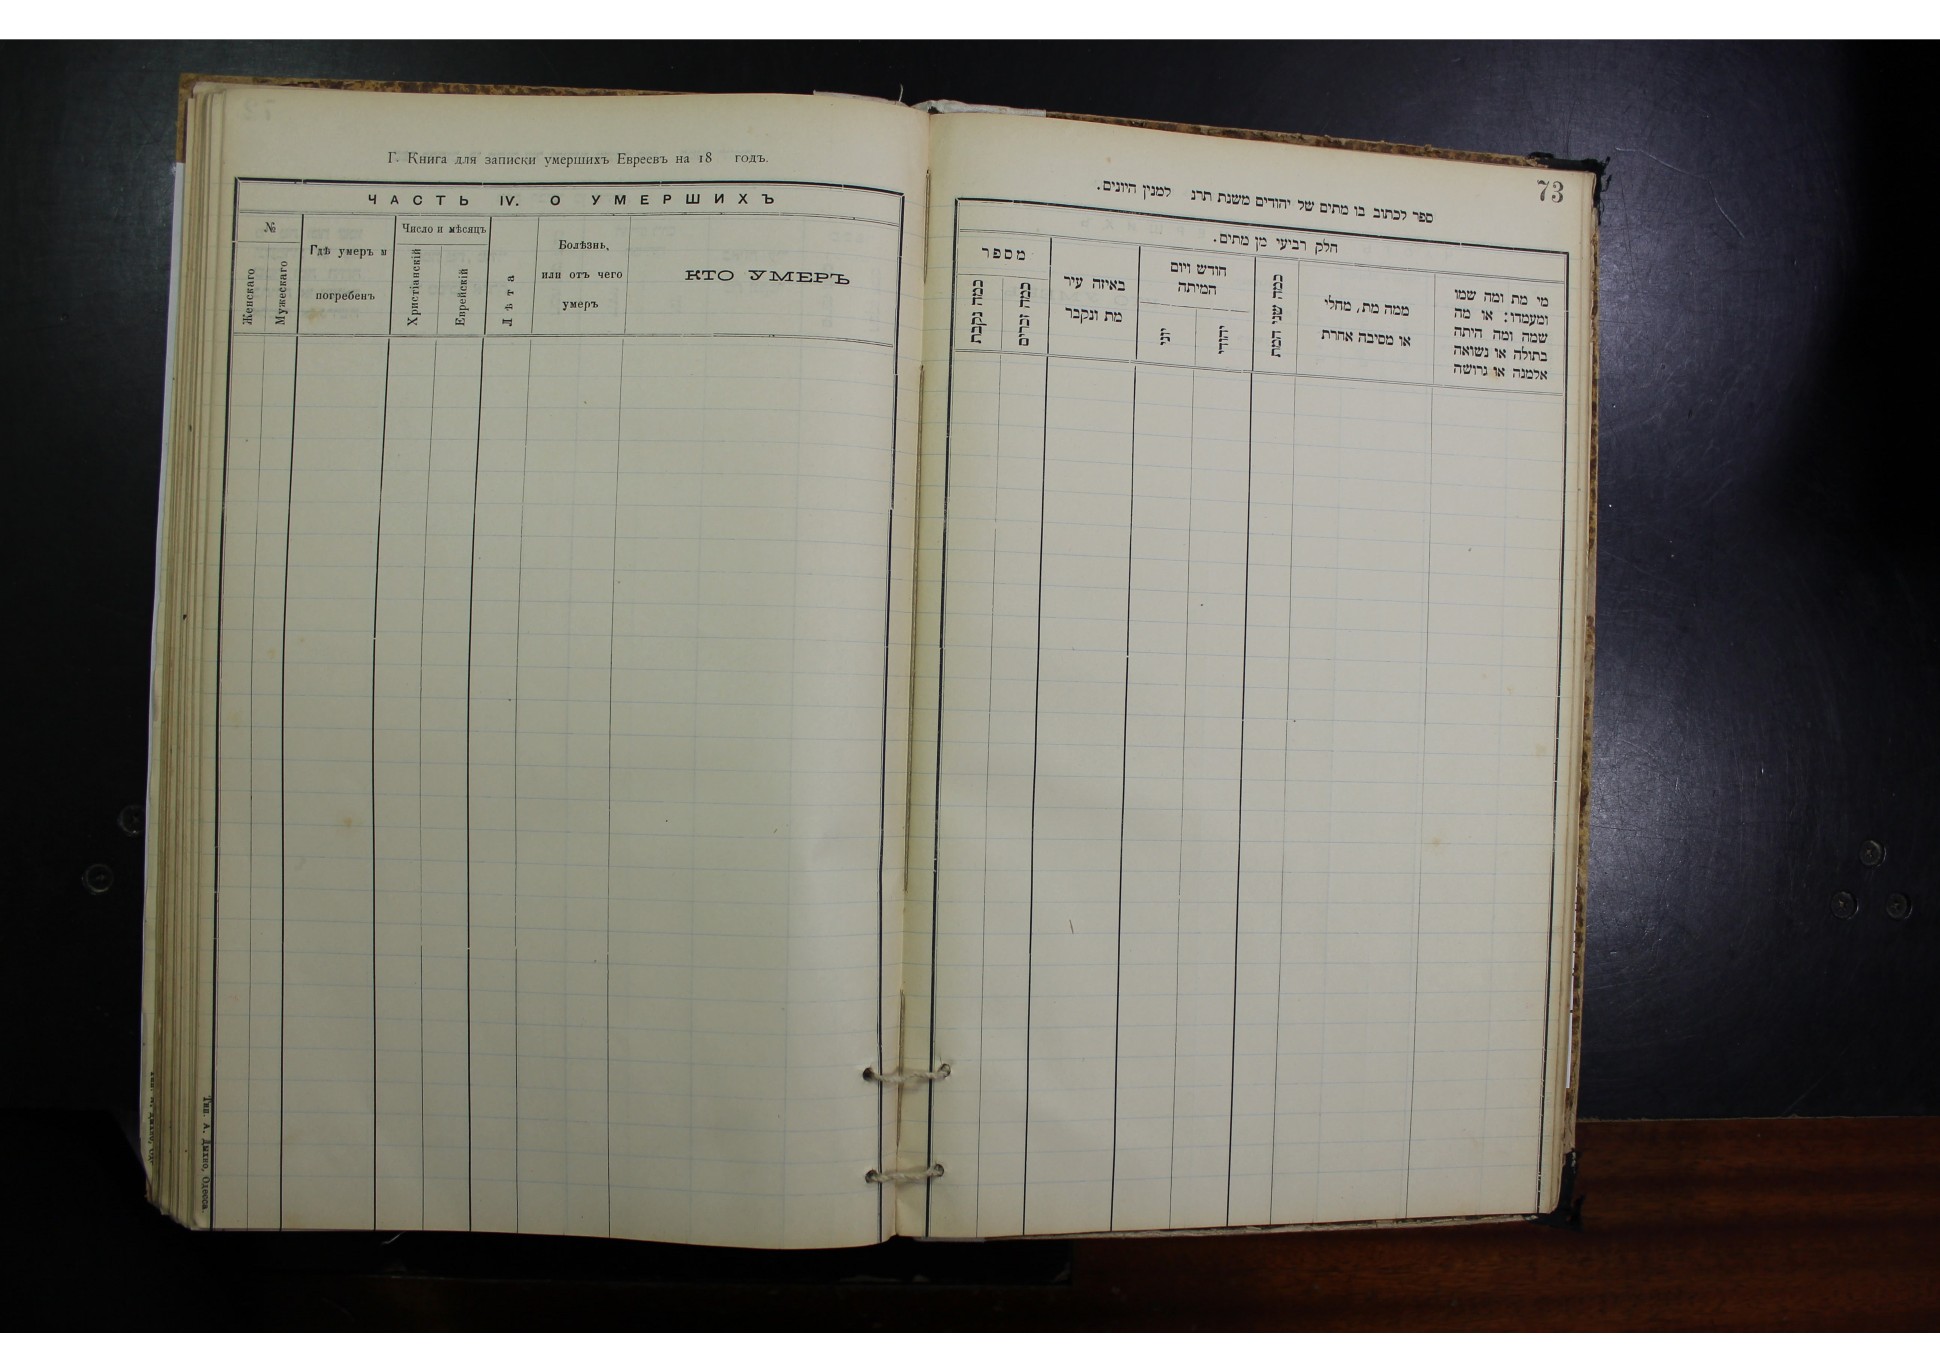 Г. Книга для записки умершихъ Евреевъ на 18 годъ.
ЧАСТЬ IV. О УМЕРШИХЪ
№
Женскаго
Мужескаго
Гдѣ умеръ и
погребенъ
Число и мѣсяцъ
Христіанскій
Еврейскій
Лѣта
Болѣзнь,
или отъ чего
умеръ
КТО УМЕРЪ
Тип. А. Дыхно, Одесса.
73
ספר לכתוב בו מתים של יהודים משנת תרנ למנין היונים.
חלק רביעי מן מתים.
מספר
כמה נקבת
כמה זכרים
באיזה עיר
מת ונקבר
חודש ויום
המיתה
יוני
יהודי
כמה שני המת
ממה מת, מחלי
או מסיבה אחרת
מי מת ומה שמו
ומעמדו: או מה
שמה ומה היתה
בתולה או נשואה
אלמנה או גרושה